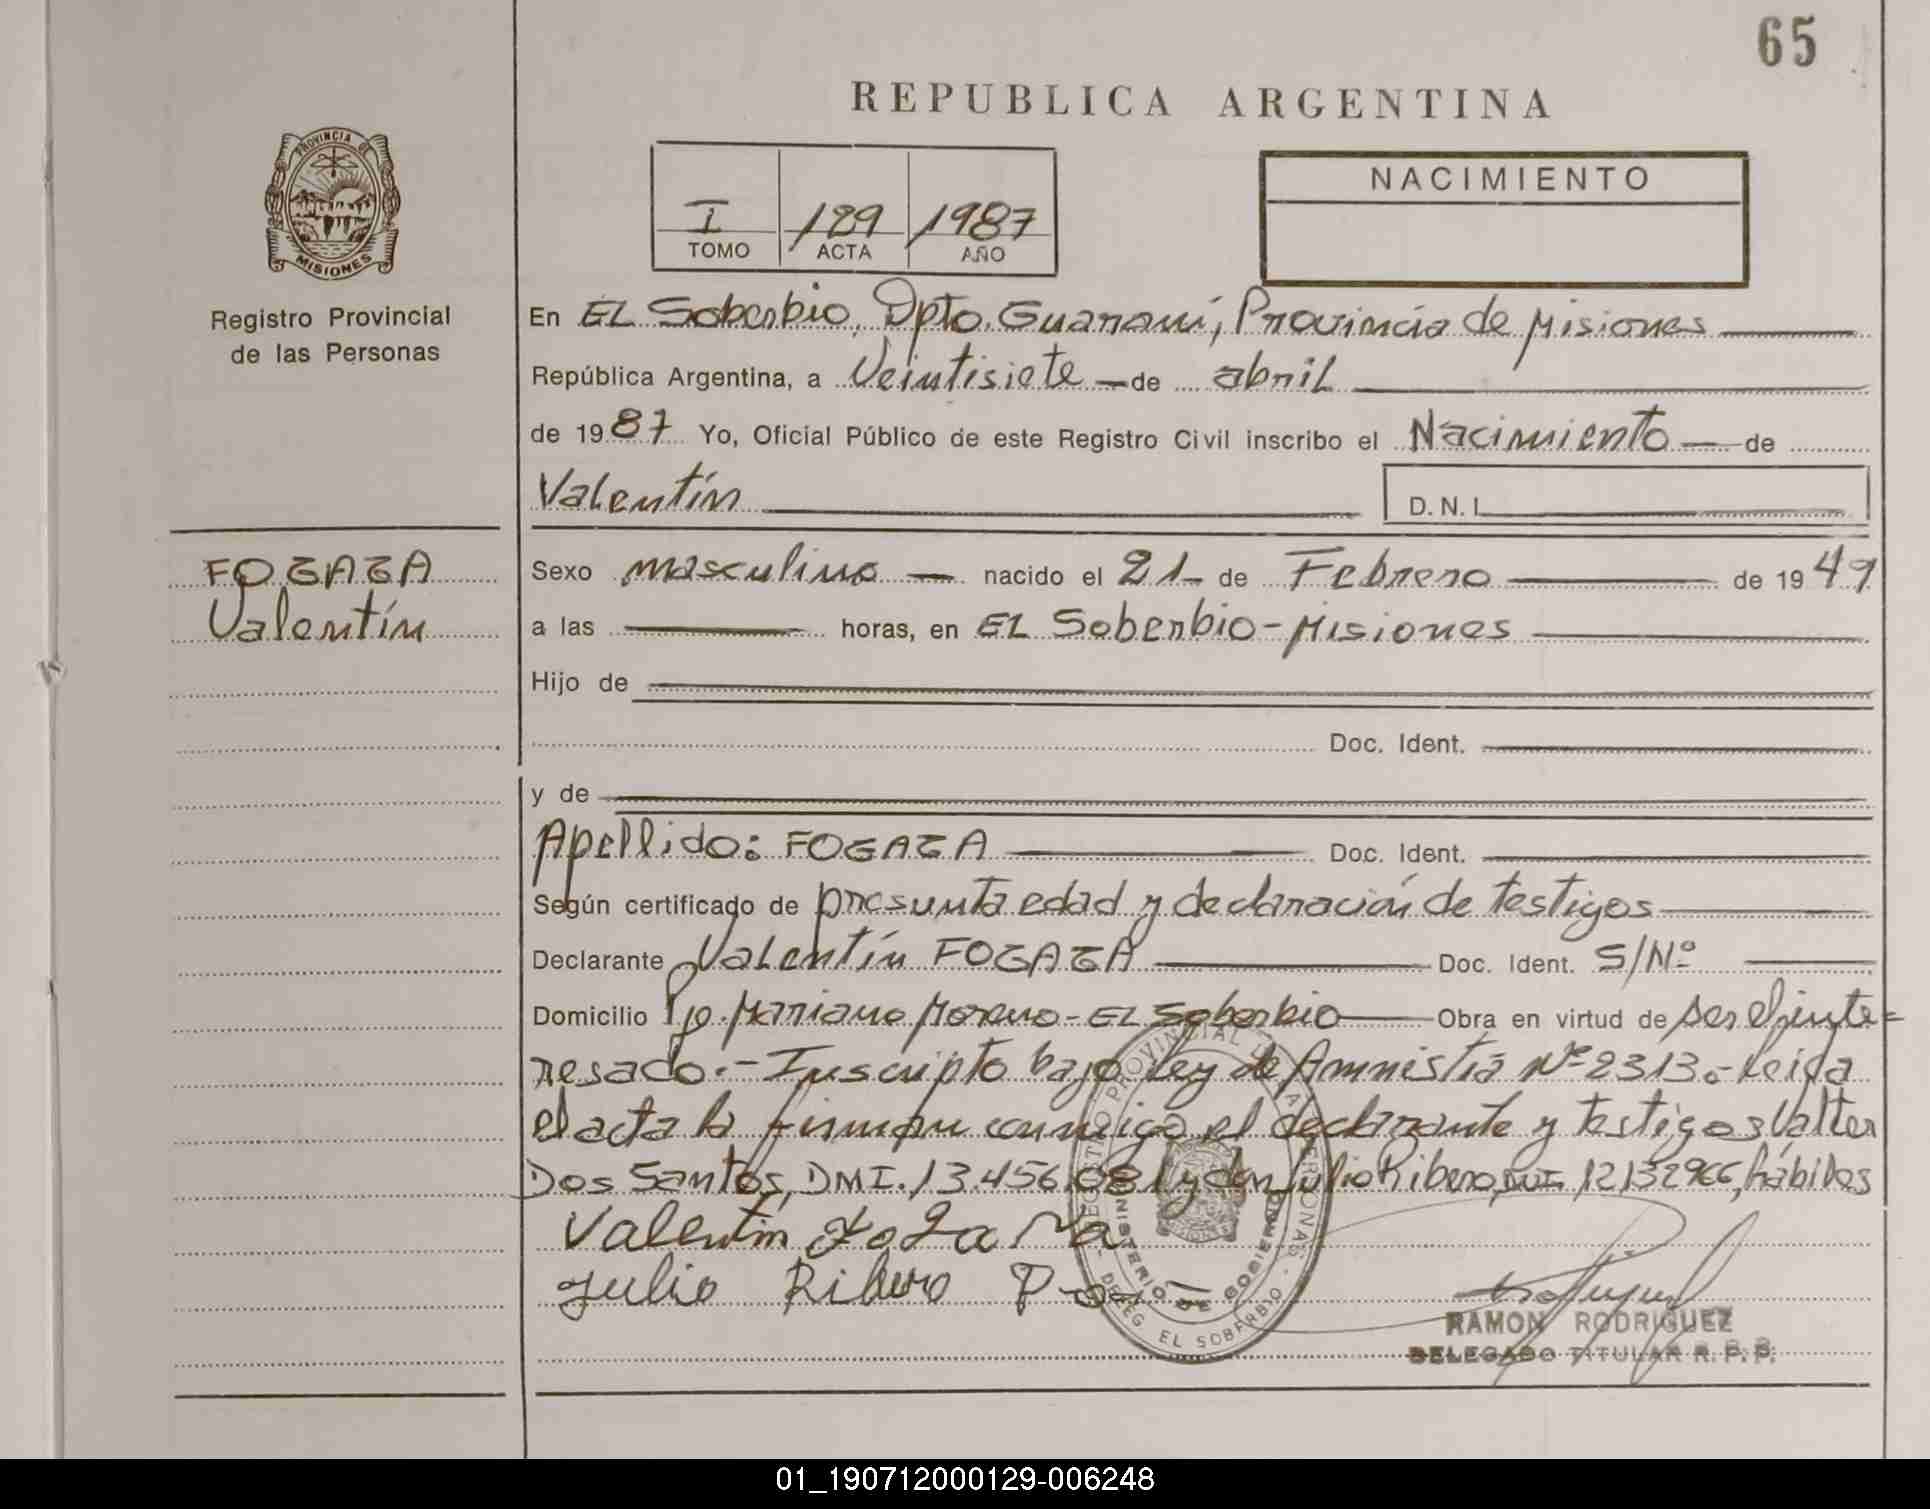 65
REPUBLICA ARGENTINA
PROVINCIA DE
MISIONES
Registro Provincial
de las Personas
I 129 1987
TOMO ACTA AÑO
NACIMIENTO
En EL Soberbio, Dpto. Guaraní, Provincia de Misiones
República Argentina, a Veintisiete de abril
de 1987 Yo, Oficial Público de este Registro Civil inscribo el Nacimiento de
Valentín D.N.I.
FOGAZA
Valentín
Sexo masculino nacido el 21 de Febrero de 1949
a las horas, en EL Soberbio - Misiones
Hijo de
Doc. Ident.
y de
Apellido: FOGAZA Doc. Ident.
Según certificado de presunta edad y declaración de testigos
Declarante Valentín FOGAZA Doc. Ident. S/Nº
Domicilio Pje. Mariano Moreno - EL Soberbio Obra en virtud de ser el inte=
resado.- Inscripto bajo Ley de Amnistía Nº 2313.- Leida
el acta la firman conmigo el declarante y testigos Valter
Dos Santos, DMI. 13.456.081 y don Julio Ribero, 12132966, hábiles
Valentin
Julio Ribero
REGISTRO PROVINCIAL DE LAS PERSONAS
MINISTERIO DE GOBIERNO
DELEG. EL SOBERBIO
RAMON RODRIGUEZ
DELEGADO TITULAR R. P. P.
01_190712000129-006248